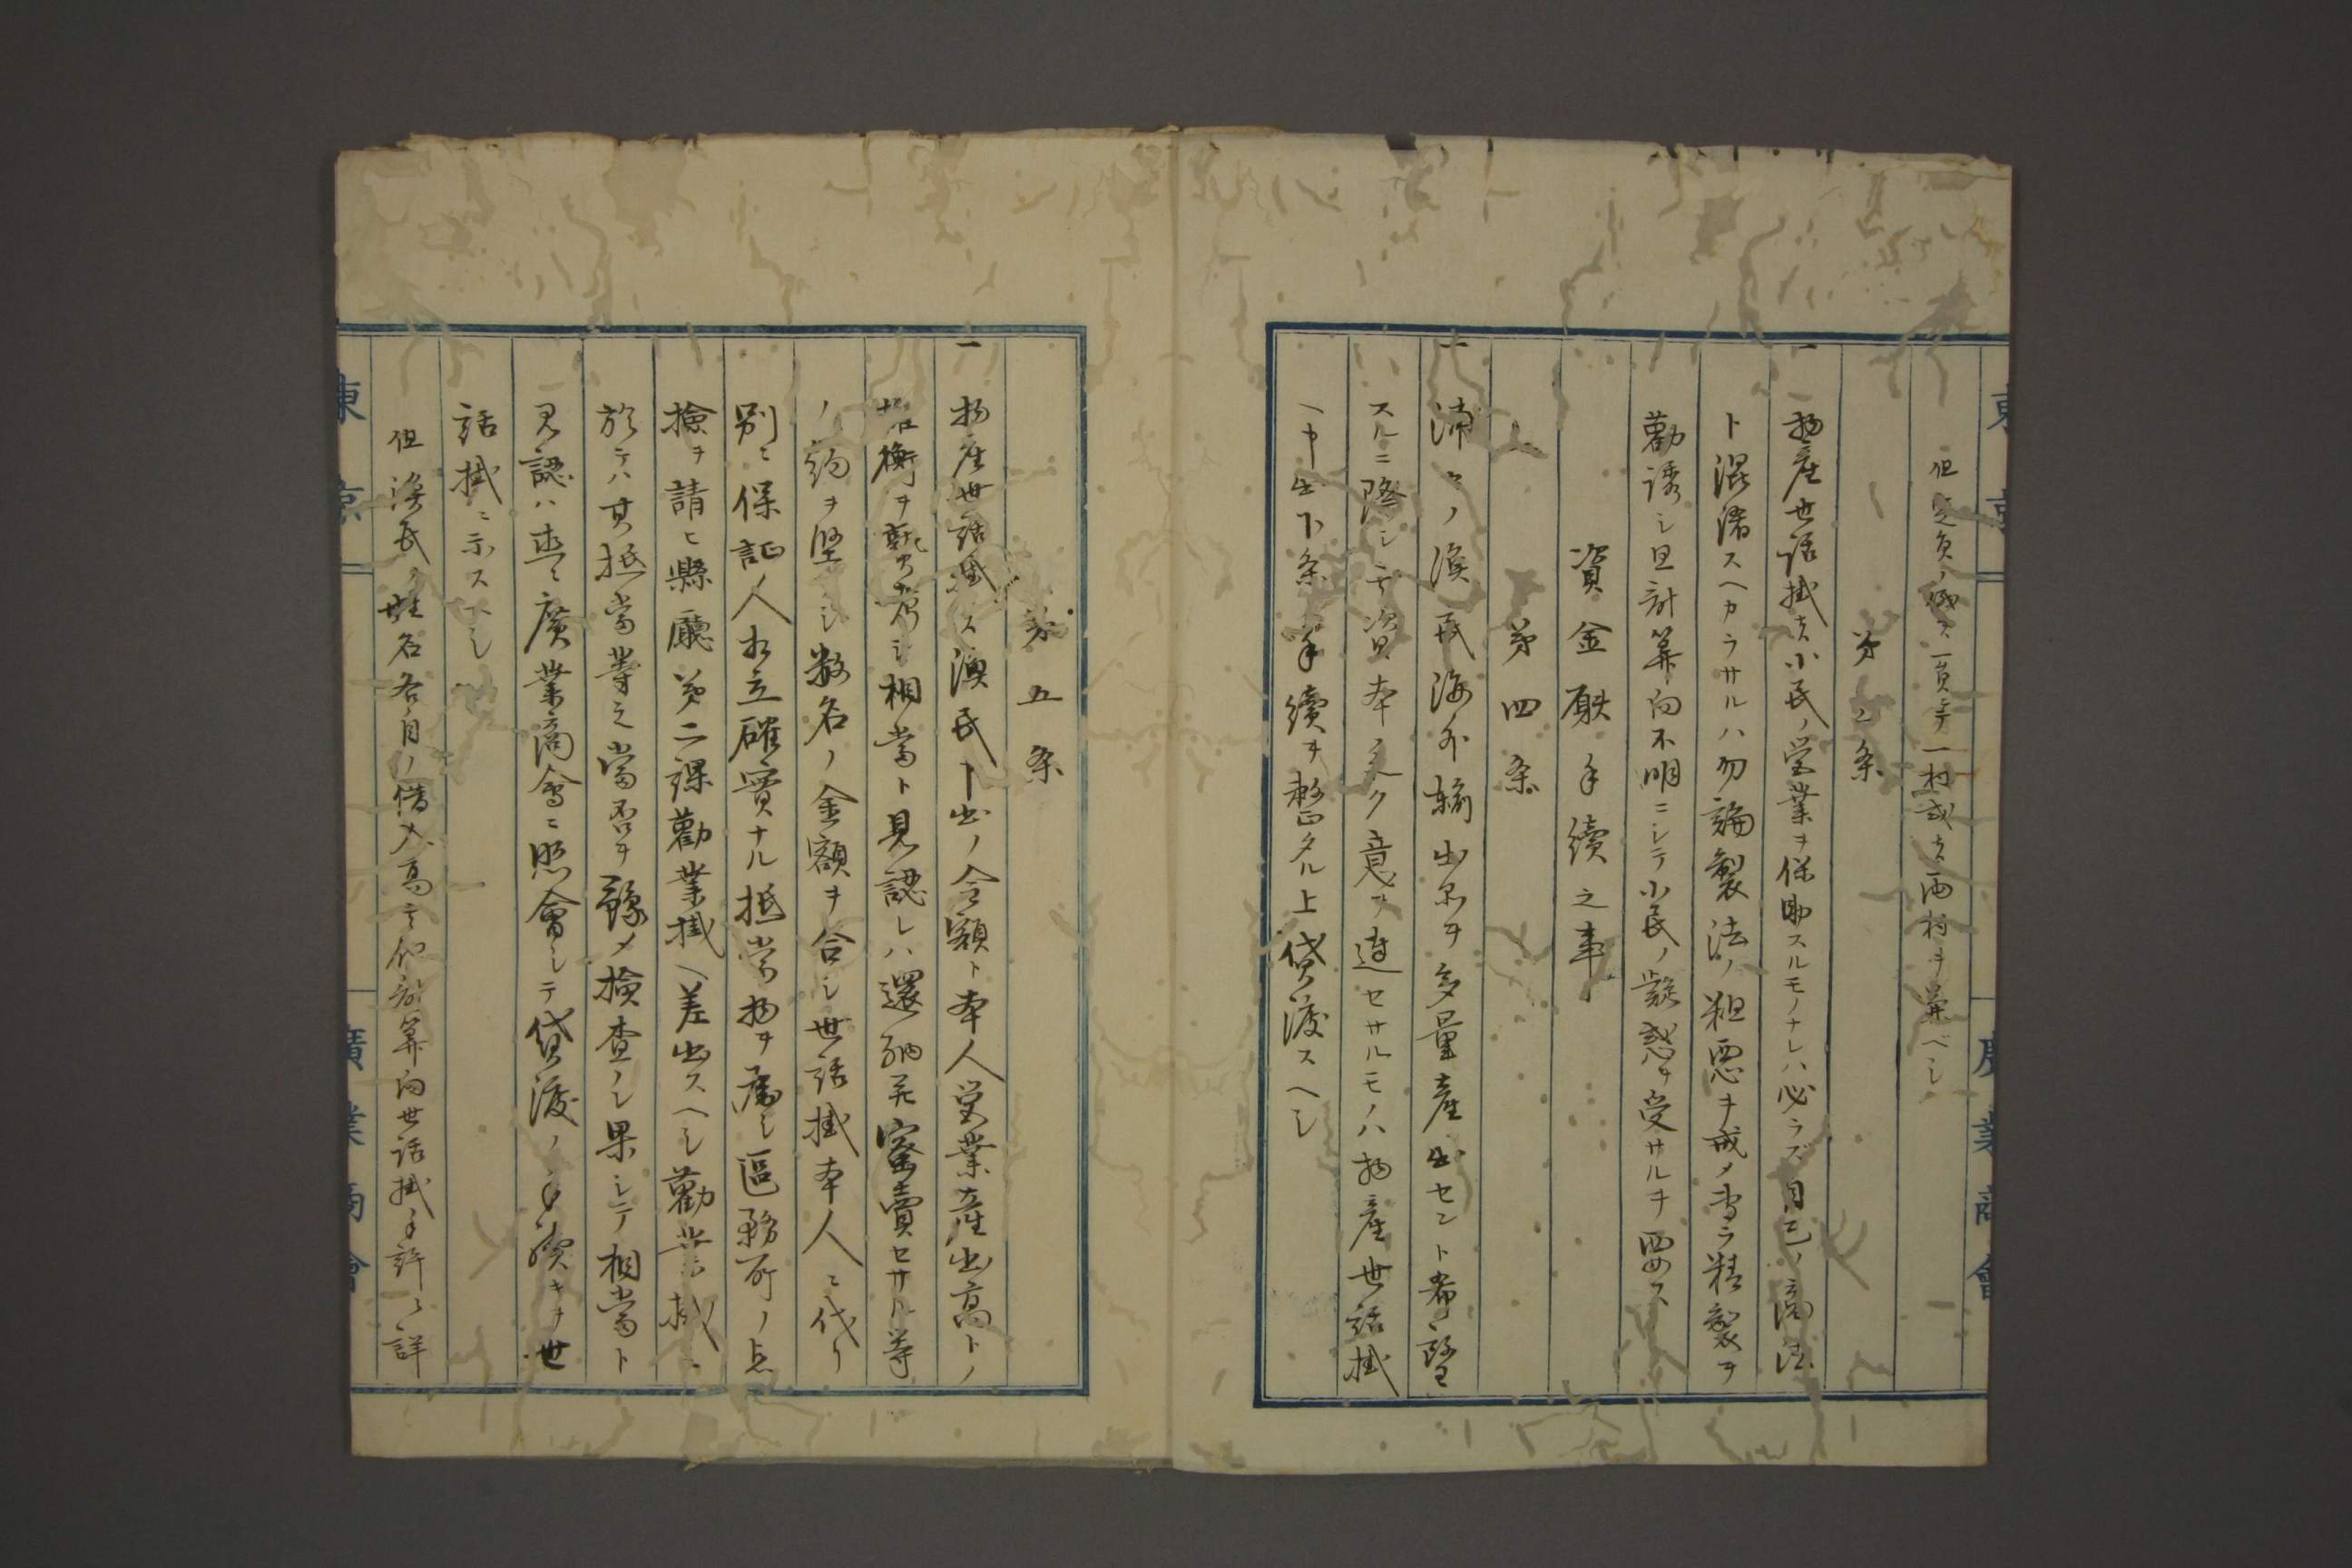 但定員ノ儀ハ一員ヲ一村或ハ両村ヲ兼ベシ
第三条
一 物産世話掛ハ小民ノ営業ヲ保助スルモノナレハ必ラズ自己ノ商法
ト混淆スヘカラサルハ勿論製法ノ粗悪ヲ戒メ専ラ精製ヲ
勧誘シ且計算向不明ニシテ小民ノ疑惑ヲ受サルヲ要ス
資金取手續之事
第四条
一 浦々ノ漁民海外輸出品ヲ多量産出セント希望
スルニ際シテ資本乏ク意ヲ達セサルモノハ物産世話掛
ヘ申出下条手續ヲ整タル上貸渡スヘシ
第五条
一 物産世話掛ハ漁民申出ノ金額ト本人営業産出高トノ
権衡ヲ熟考シ相當ト見認レハ還納并密賣セサル等
ノ約ヲ堅シ数名ノ金額ヲ合シ世話掛本人ニ代リ
別ニ保証人相立確實ナル抵當物ヲ備シ區務所ノ点
檢ヲ請ヒ縣廳第二課勸業掛ヘ差出スヘシ勸業掛ニ
於テハ其抵當等之當否ヲ豫メ檢査シ果シテ相當ト
見認ハ直ニ廣業商會ニ照會シテ貸渡ノ手續キヲ世
話掛ニ示スヘシ
但漁民ノ姓名各自ノ借入高其他計算向世話掛手許ニ詳
東京
廣業商會
東京
廣業商會